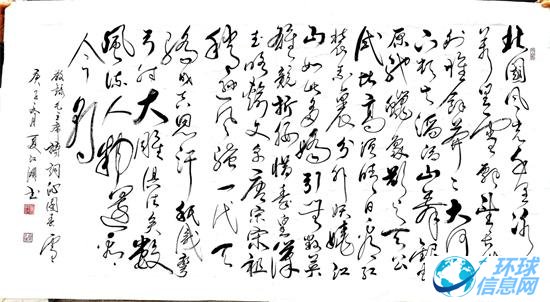 北國風光千里冰
萬里雪飄望長城
外惟餘莽々大河
下頓失滔滔山舞銀
原馳蠟象欲與天公
試比高須晴日看紅
裝素裹分外妖嬈江
山如此多嬌引無數英
雄競折腰惜秦皇漢
武略輸文采唐宗宋祖
稍遜風騷一代天
驕成吉思汗祇識彎
弓射大雕俱往矣數
風流人物還看
今朝
毛主席詩詞沁園春雪
庚子 月 夏江湖書
环球
信息网